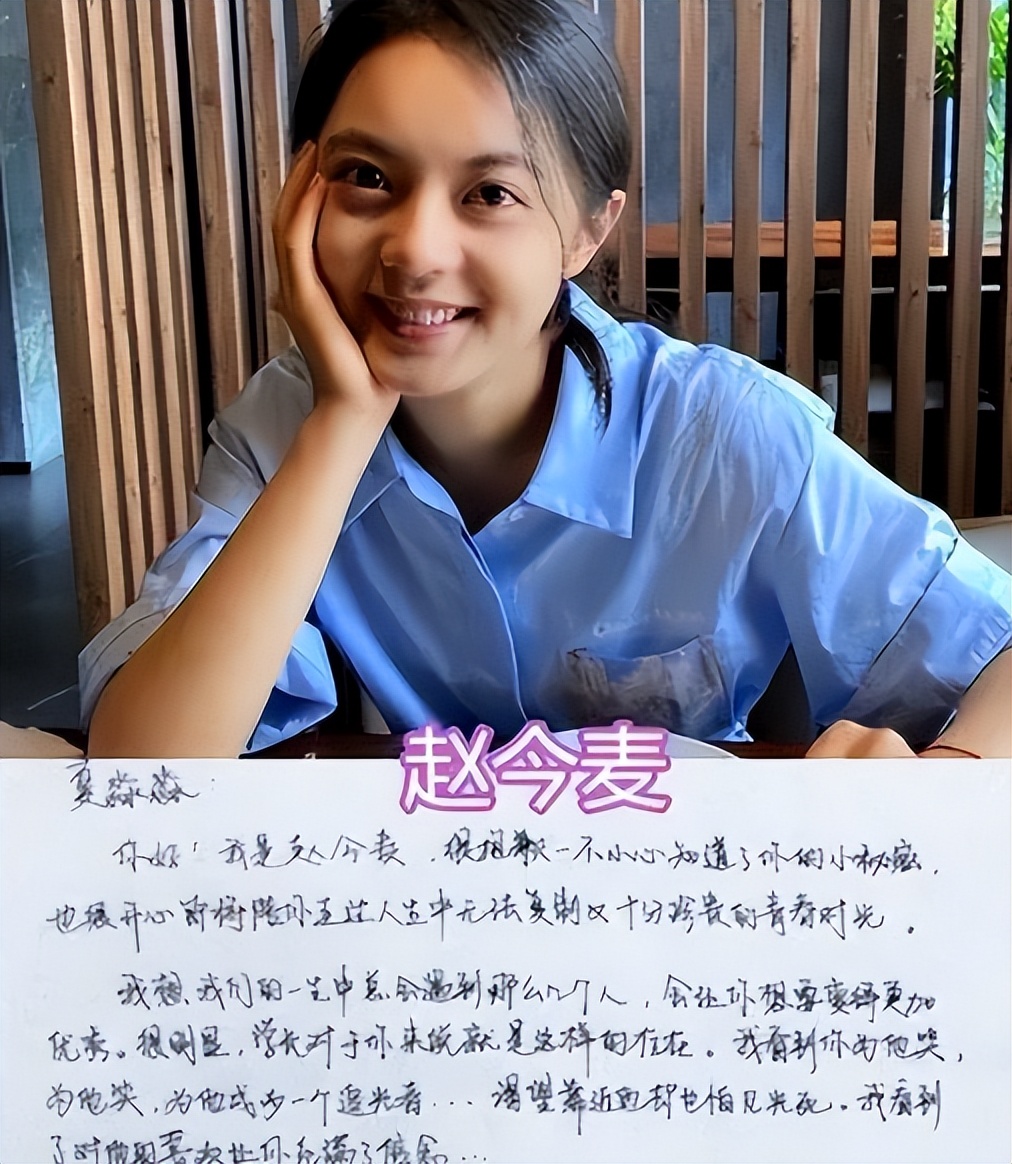 赵今麦
夏淼淼：
你好！我是赵今麦，很抱歉一不小心知道了你的小秘密，
也很开心 陪你走过人生中无法复制又十分珍贵的青春时光。
我想，我们的一生中总会遇到那么几个人，会让你想要变得更加
优秀。很明显，学长对于你来说就是这样的存在。我看到你为他哭，
为他笑，为他成为一个追光者... 渴望靠近 却也怕见光死。我看到
了对他的喜欢让你充满了信念...